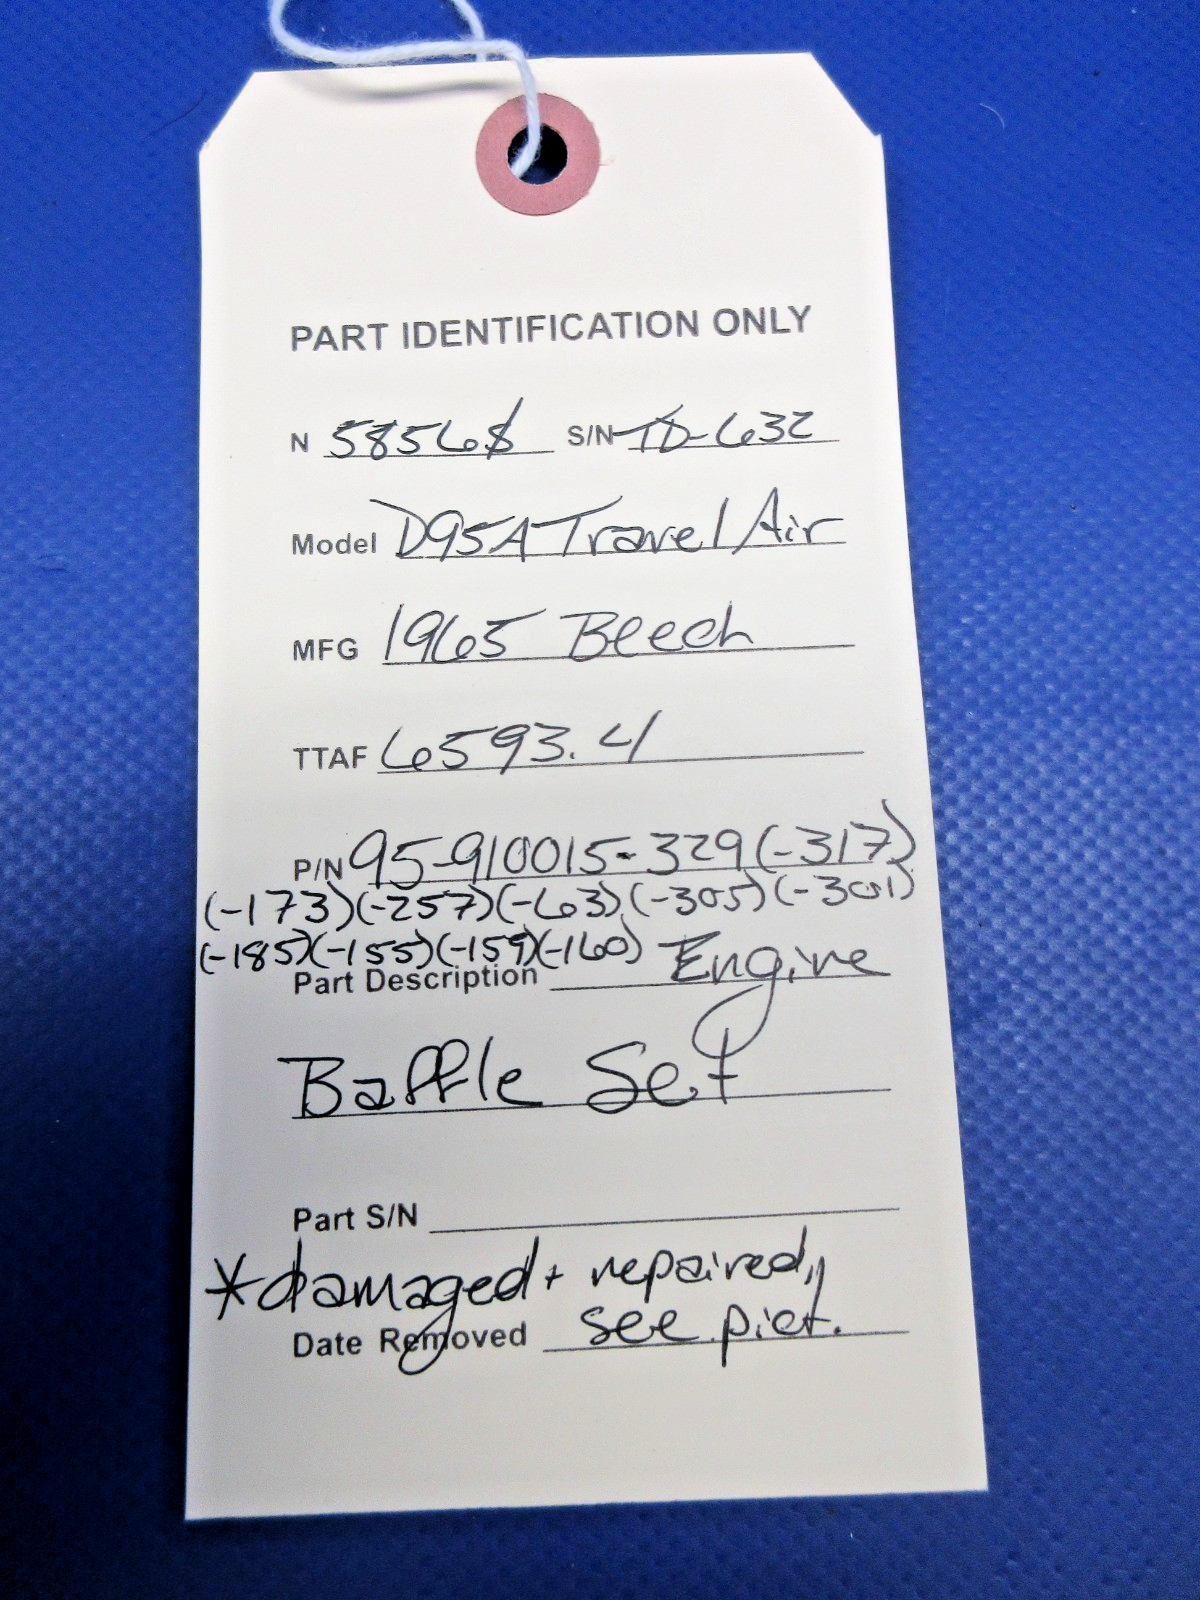 PART IDENTIFICATION ONLY
N 5856S S/N TD-632
Model D95A Travel Air
MFG 1965 Beech
TTAF 6593.4
P/N 95-910015-329(-317)
(-173)(-257)(-63)(-305)(-301)
(-185)(-155)(-159)(-160)
Part Description Engine
Baffle Set
Part S/N
*damaged + repaired,
Date Removed see pict.